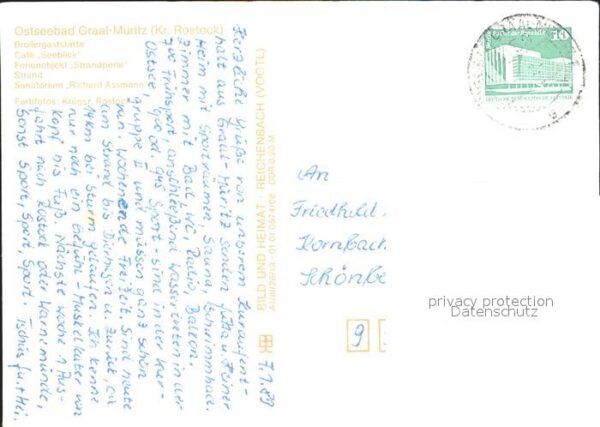 Ostseebad Graal-Müritz (Kr. Rostock)
Broilergaststätte
Café „Seeblick"
Ferienobjekt „Strandperle"
Strand
Sanatorium „Richard Assmann
Farbfotos: Krüger, Rostock
BILD UND HEIMAT · REICHENBACH (VOGTL)
A1/III/26/13 01 01 0974/08 DDR 0,20 M
Herzliche Grüße von unserem Kuraufent-
halt aus Graal-Müritz senden Jutta u. Heiner
Heim mit Sporträumen, Sauna, Schwimmhalle
Zimmer mit Bad, WC, Radio, Balkon.
7°° Frühsport, anschließend Wassertreten in der
Ostsee, u. d. ganz Sport - sind in der Kur-
gruppe II und müssen ganz schön
ran. Wochenende Freizeit. Sind heute
am Strand bis Dierhagen u. zurück, ca
14 km bei Sturm gelaufen. Ich kenne
nur noch ein Gefühl - Muskelkater von
Kopf bis Fuß. Nächste Woche 1 Aus-
fahrt nach Rostock oder Warnemünde,
sonst Sport, Sport, Sport. Tschüs Ju. + Hei.
7.1.89
10
DEUTSCHE DEMOKRATISCHE REPUBLIK
An
Friedhild
Kornbach
Schönbe
9
privacy protection
Datenschutz